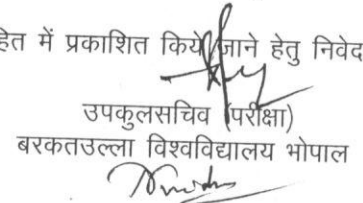 हित में प्रकाशित किये जाने हेतु निवेद
उपकुलसचिव (परीक्षा)
बरकतउल्ला विश्वविद्यालय भोपाल